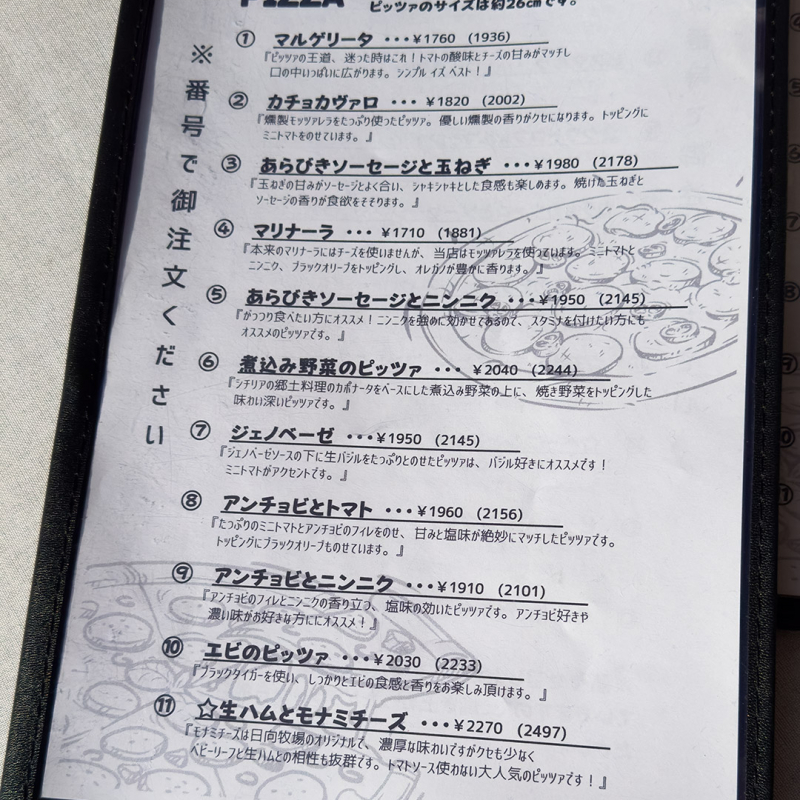 PIZZA ピッツァのサイズは約26㎝です。
※番号で御注文ください
① マルゲリータ ・・・¥1760 (1936)
『ピッツァの王道、迷った時はこれ！トマトの酸味とチーズの甘みがマッチし
口の中いっぱいに広がります。シンプル イズ ベスト！』
② カチョカヴァロ ・・・ ¥1820 (2002)
『燻製モッツァレラをたっぷり使ったピッツァ。優しい燻製の香りがクセになります。トッピングに
ミニトマトをのせています。』
③ あらびきソーセージと玉ねぎ ・・・¥1980 (2178)
『玉ねぎの甘みがソーセージとよく合い、シャキシャキとした食感も楽しめます。焼けた玉ねぎと
ソーセージの香りが食欲をそそります。』
④ マリナーラ ・・・¥1710 (1881)
『本来のマリナーラにはチーズを使いませんが、当店はモッツァレラを使っています。ミニトマトと
ニンニク、ブラックオリーブをトッピングし、オレガノが豊かに香ります。』
⑤ あらびきソーセージとニンニク ・・・¥1950 (2145)
『がっつり食べたい方にオススメ！ニンニクを強めに効かせてあるので、スタミナを付けたい方にも
オススメのピッツァです。』
⑥ 煮込み野菜のピッツァ ・・・ ¥2040 (2244)
『シチリアの郷土料理のカポナータをベースにした煮込み野菜の上に、焼き野菜をトッピングした
味わい深いピッツァです。』
⑦ ジェノベーゼ ・・・¥1950 (2145)
『ジェノベーゼソースの下に生バジルをたっぷりとのせたピッツァは、バジル好きにオススメです！
ミニトマトがアクセントです。』
⑧ アンチョビとトマト ・・・¥1960 (2156)
『たっぷりのミニトマトとアンチョビのフィレをのせ、甘みと塩味が絶妙にマッチしたピッツァです。
トッピングにブラックオリーブものせています。』
⑨ アンチョビとニンニク ・・・¥1910 (2101)
『アンチョビのフィレとニンニクの香り立つ、塩味の効いたピッツァです。アンチョビ好きや
濃い味がお好きな方ににオススメ！』
⑩ エビのピッツァ ・・・¥2030 (2233)
『ブラックタイガーを使い、しっかりとエビの食感と香りをお楽しみ頂けます。』
⑪ ☆生ハムとモナミチーズ ・・・¥2270 (2497)
『モナミチーズは日向牧場のオリジナルで、濃厚な味わいですがクセも少なく
ベビーリーフと生ハムとの相性も抜群です。トマトソース使わない大人気のピッツァです！』